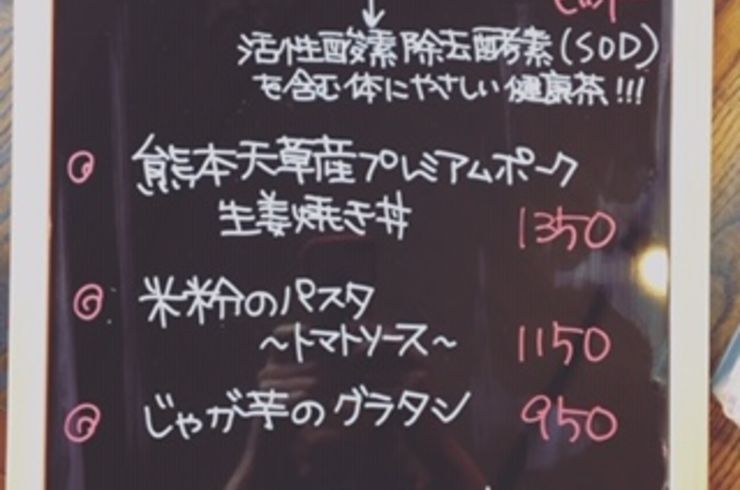 ↓
活性酸素除去酵素(SOD)
を含む体にやさしい健康茶!!!
熊本天草産プレミアムポーク
生姜焼き丼 1350
米粉のパスタ
~トマトソース~ 1150
じゃが芋のグラタン 950